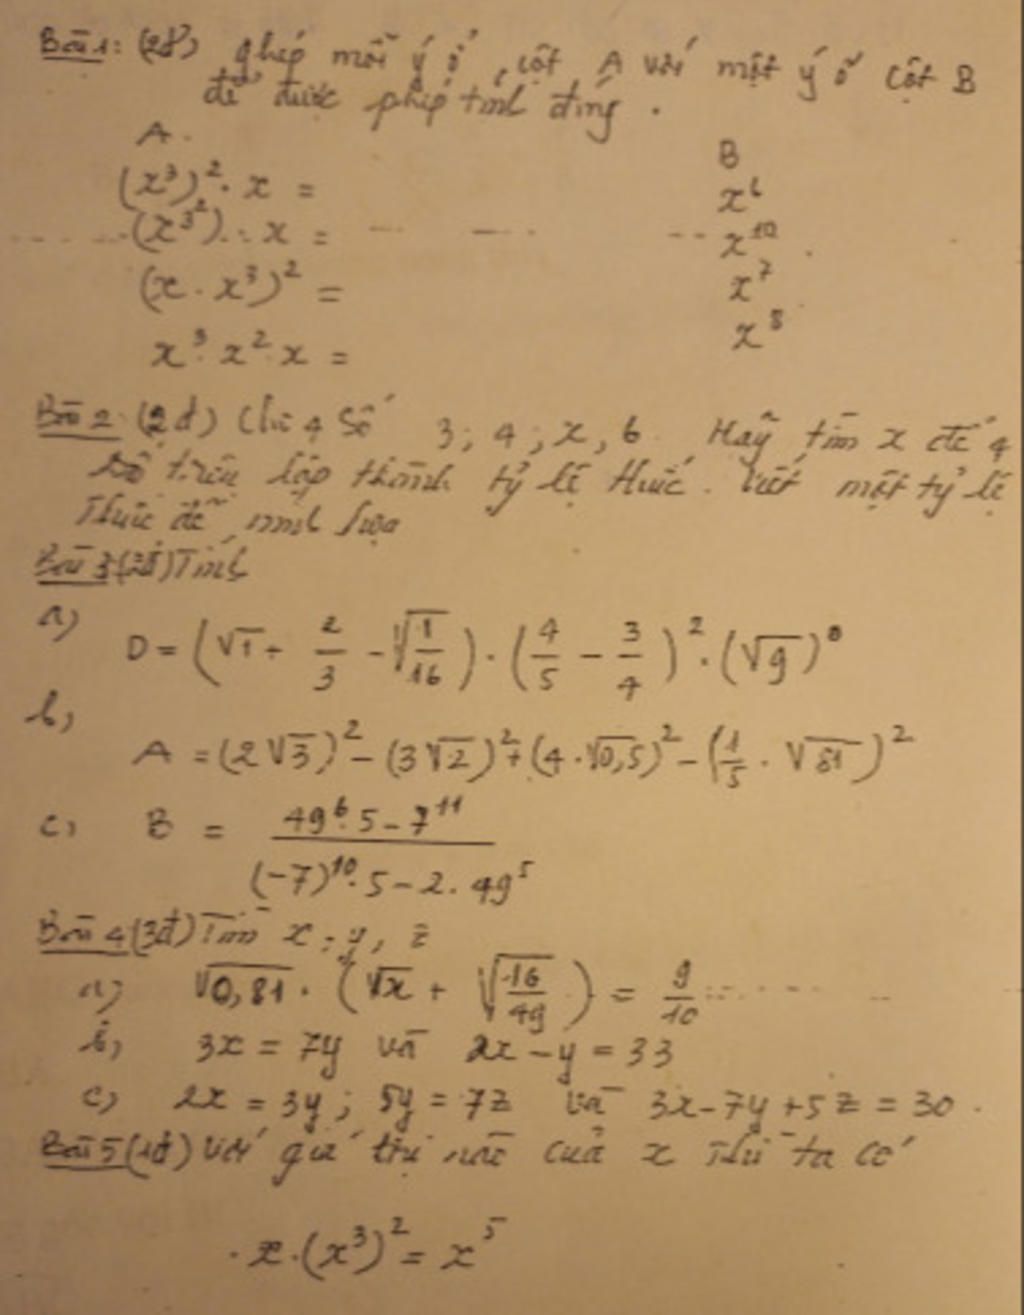 Bài 1: (2đ) ghép mỗi ý ở cột A với một ý ở cột B
để được phép tính đúng.
A.
B
(x³)². x =
x⁶
(x^{3^2}). x =
x¹⁰
(x . x³)² =
x⁷
x³. x². x =
x⁸
Bài 2: (2đ) Cho 4 số 3; 4; x, 6. Hãy tìm x để 4
số trên lập thành tỷ lệ thức. Viết một tỷ lệ
thức để minh họa
Bài 3 (2đ) Tính
a)
D = (√1 + 2/3 - √(1/16)) . (4/5 - 3/4)². (√9)⁰
b,
A = (2√3)² - (3√2)² + (4.√0,5)² - (1/5 . √81)²
c, B = (49⁶. 5 - 7¹¹) / ((-7)¹⁰. 5 - 2. 49⁵)
Bài 4 (3đ) Tìm x, y, z
a) √0,81 . (√x + √(16/49)) = 9/10
b, 3x = 7y và 2x - y = 33
c) 2x = 3y; 5y = 7z và 3x - 7y + 5z = 30.
Bài 5 (1đ) Với giá trị nào của x thì ta có
x.(x³)² = x⁵